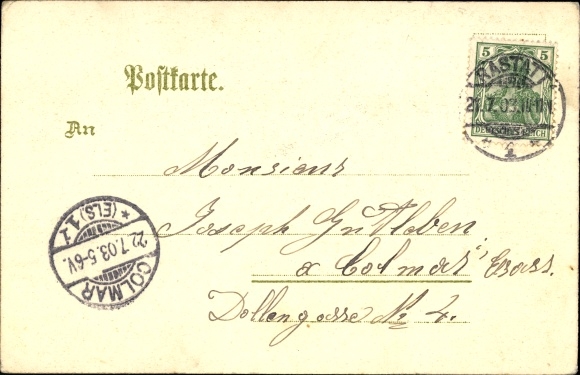 Postkarte.
5 5
RASTATT
21.7.03.
DEUTSCHES REICH
An
Monsieur
Joseph Gutleben
a Colmar, Elsass.
Dollengasse № 4.
COLMAR
22.7.03.5-6V.
* (ELS) 1 z